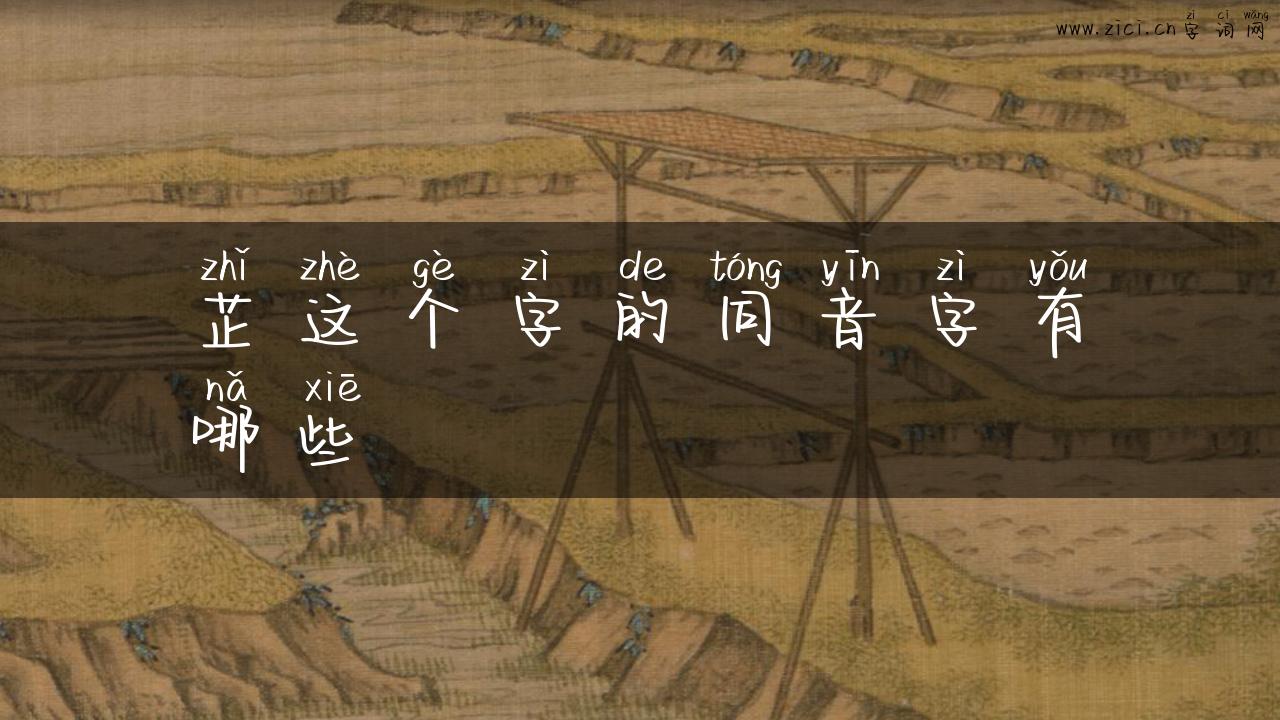 zì cí wǎng
www.zici.cn 字词网
zhǐ zhè gè zì de tóng yīn zì yǒu
芷这个字的同音字有
nǎ xiē
哪些